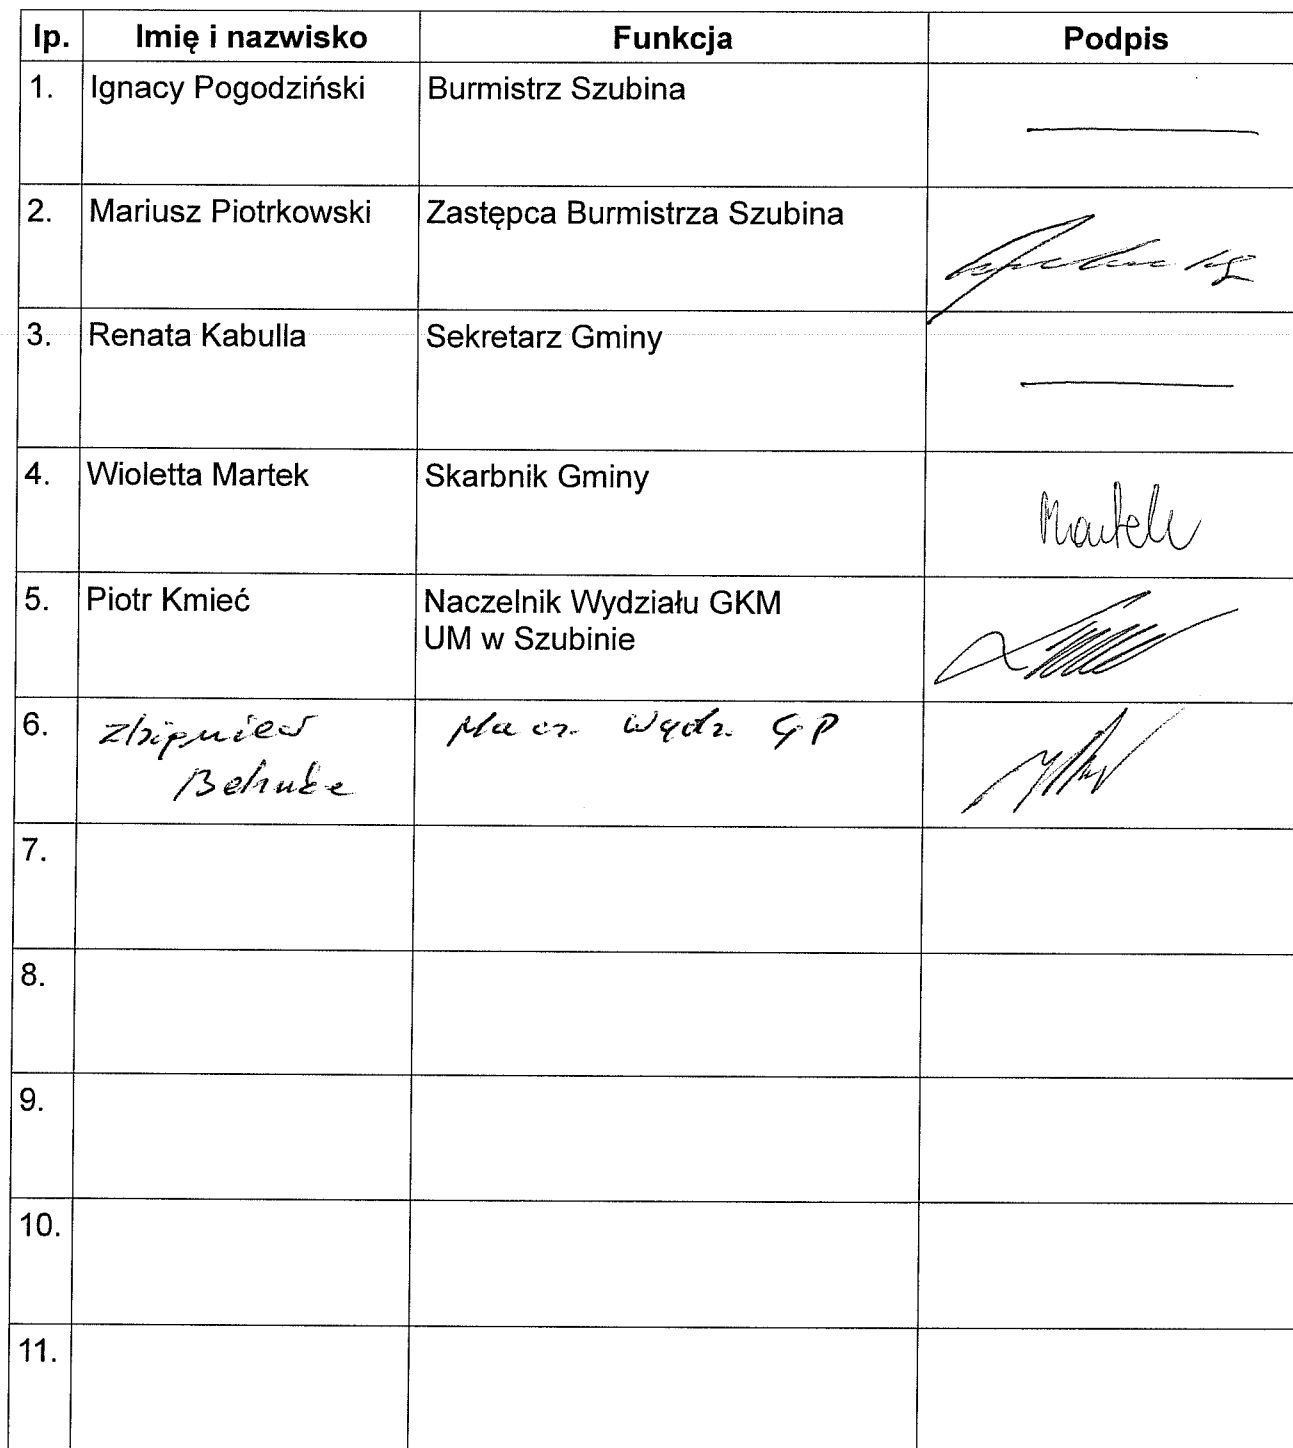 lp. Imię i nazwisko Funkcja Podpis
1. Ignacy Pogodziński Burmistrz Szubina
2. Mariusz Piotrkowski Zastępca Burmistrza Szubina
3. Renata Kabulla Sekretarz Gminy
4. Wioletta Martek Skarbnik Gminy Martek
5. Piotr Kmieć Naczelnik Wydziału GKM
UM w Szubinie
6. Zbigniew Nacz. Wydz. GP
7.
8.
9.
10.
11.